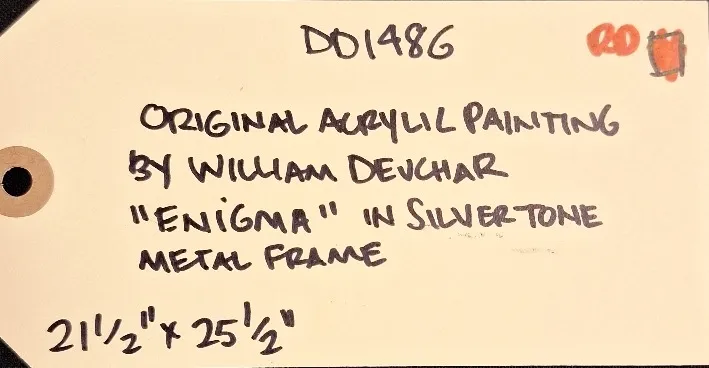 DD1486
RD
ORIGINAL ACRYLIC PAINTING
BY WILLIAM DEVCHAR
"ENiGMA" IN SILVERTONE
METAL FRAME
21 1/2" x 25 1/2"